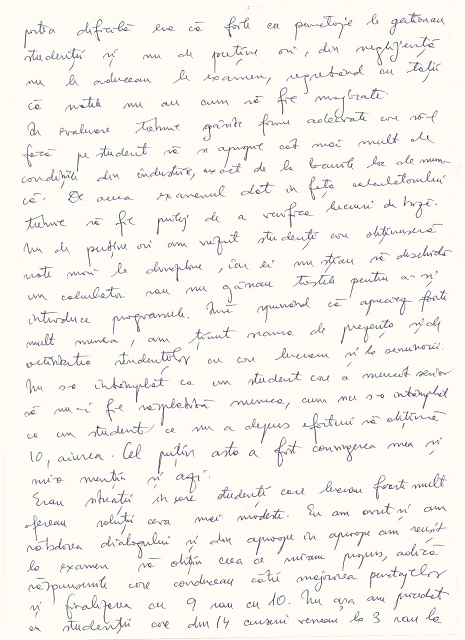 partea dificilă era că foile cu punctaje le gestionau
studenții și nu de puține ori, din neglijență
nu le aduceau la examen, regretând cu toții
că notele nu au cum să fie majorate.
În evaluare trebuie găsite forme adecvate care să-l
facă pe student să se apropie cât mai mult de
condițiile din industrie, exact de la locurile lor de mun-
că. De aceea examenul dat în fața calculatorului
trebuie să fie prilej de a verifica lucruri de bază.
Nu de puține ori am văzut studenți care obținuseră
note mari la discipline, iar ei nu știau să deschidă
un calculator sau nu găseau tastele pentru a-și
introduce programele. Însă spunând că apreciez foarte
mult munca, am ținut seama de prezența și de
activitatea studenților cu care lucram și la seminarii.
Nu s-a întâmplat ca un student care a muncit serios
să nu-i fie răsplătită munca, cum nu s-a întâmplat
ca un student ce nu a depus eforturi să obțină
10, aiurea. Cel puțin asta a fost convingerea mea și
mi-o mențin și azi.
Erau situații în care studenții care lucrau foarte mult
ofereau soluții ceva mai modeste. Eu am avut și am
răbdarea dialogului și din aproape în aproape am reușit
la examen să obțin ceea ce mi-am propus, adică
răspunsurile care conduceau către majorarea punctajelor
și finalizarea cu 9 sau cu 10. Nu așa am procedat
cu studenții care din 14 cursuri veneau la 3 sau la